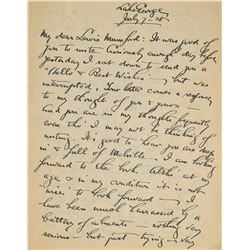 Lake George
July 9 28
My dear Lewis Mumford: It was good of
you to write. Curiously enough day before
yesterday I sat down to send you a
"Hello & Best Wishes" – but was
interrupted. Your letter comes a response
to my thought of you & yours.
you are in my thoughts frequently
even tho' I may not be thinking of
writing. It's good to hear you are
in & full of Melville. I am looking
forward to the book. Altho' at my
age & in my condition it is not
wise to look forward – I
have been much harrassed by a
battery of ailments – nothing very
serious – but just trying – very